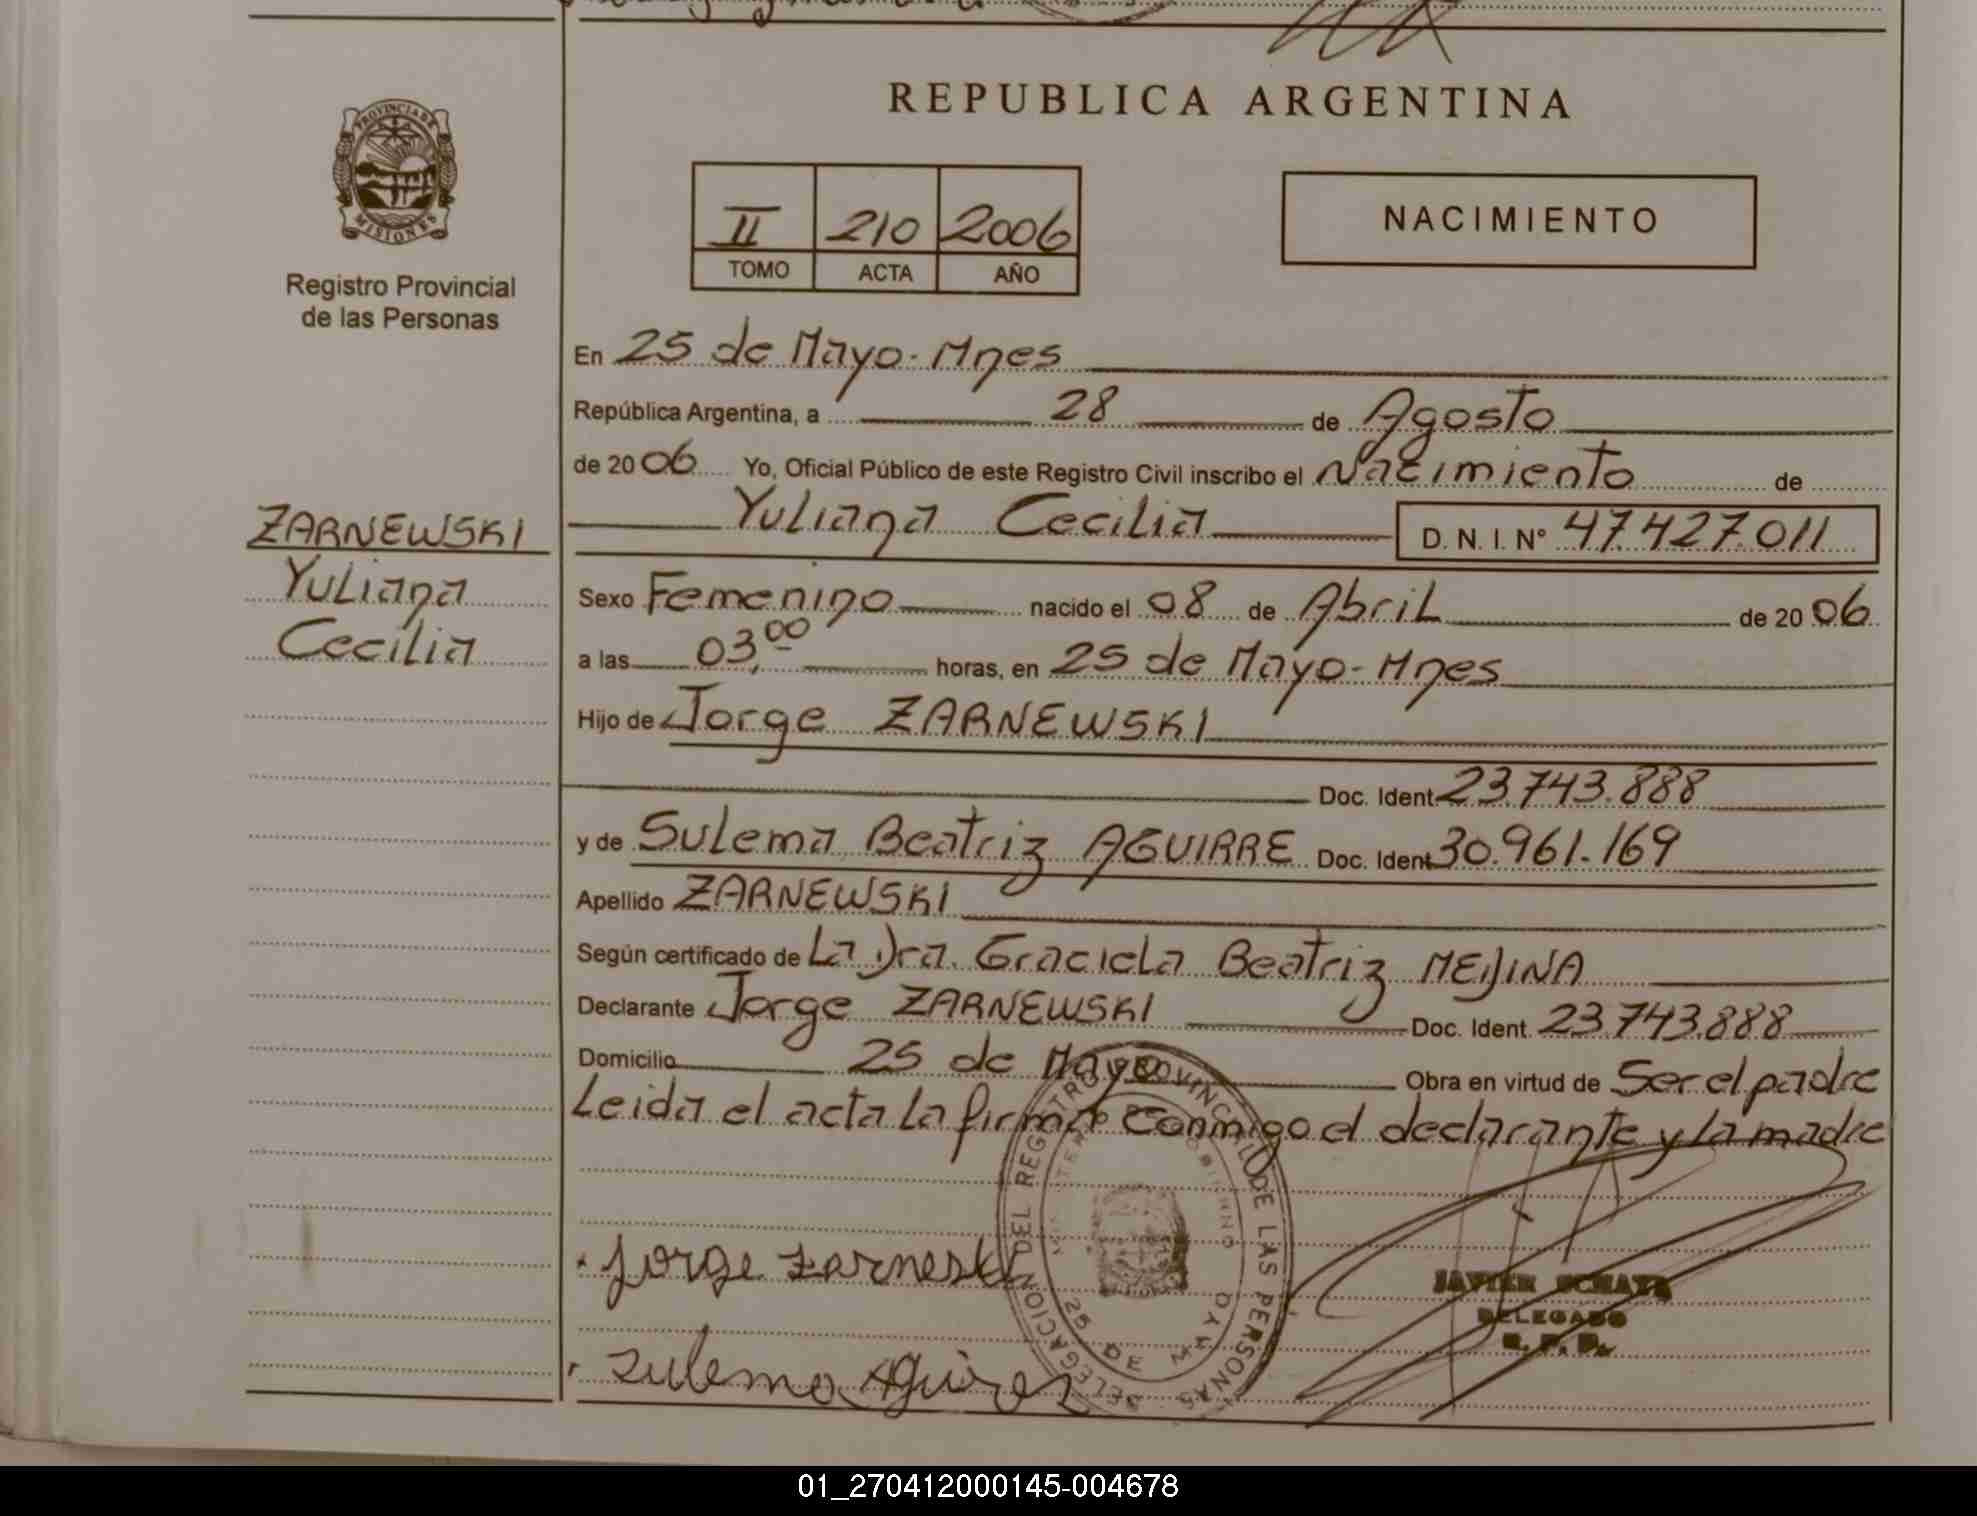 REPUBLICA ARGENTINA
PROVINCIA DE
MISIONES
Registro Provincial
de las Personas
II 210 2006
TOMO ACTA AÑO
NACIMIENTO
En 25 de Mayo - Mnes
República Argentina, a 28 de Agosto
de 2006 Yo, Oficial Público de este Registro Civil inscribo el Nacimiento de
Yuliana Cecilia D. N. I. N° 47.427.011
ZARNEWSKI
Yuliana
Cecilia
Sexo Femenino nacido el 08 de Abril de 2006
a las 03,00 horas, en 25 de Mayo - Mnes
Hijo de Jorge ZARNEWSKI
Doc. Ident. 23.743.888
y de Sulema Beatriz AGUIRRE Doc. Ident. 30.961.169
Apellido ZARNEWSKI
Según certificado de La Dra. Graciela Beatriz MEIJINA
Declarante Jorge ZARNEWSKI Doc. Ident. 23.743.888
Domicilio 25 de Mayo Obra en virtud de Ser el padre
Leida el acta la firman conmigo el declarante y la madre
DELEGACION DEL REGISTRO PROVINCIAL DE LAS PERSONAS
25 DE MAYO
Jorge Zarneski
Zulema Aguirez
JAVIER
DELEGADO
R. P. P.
01_270412000145-004678